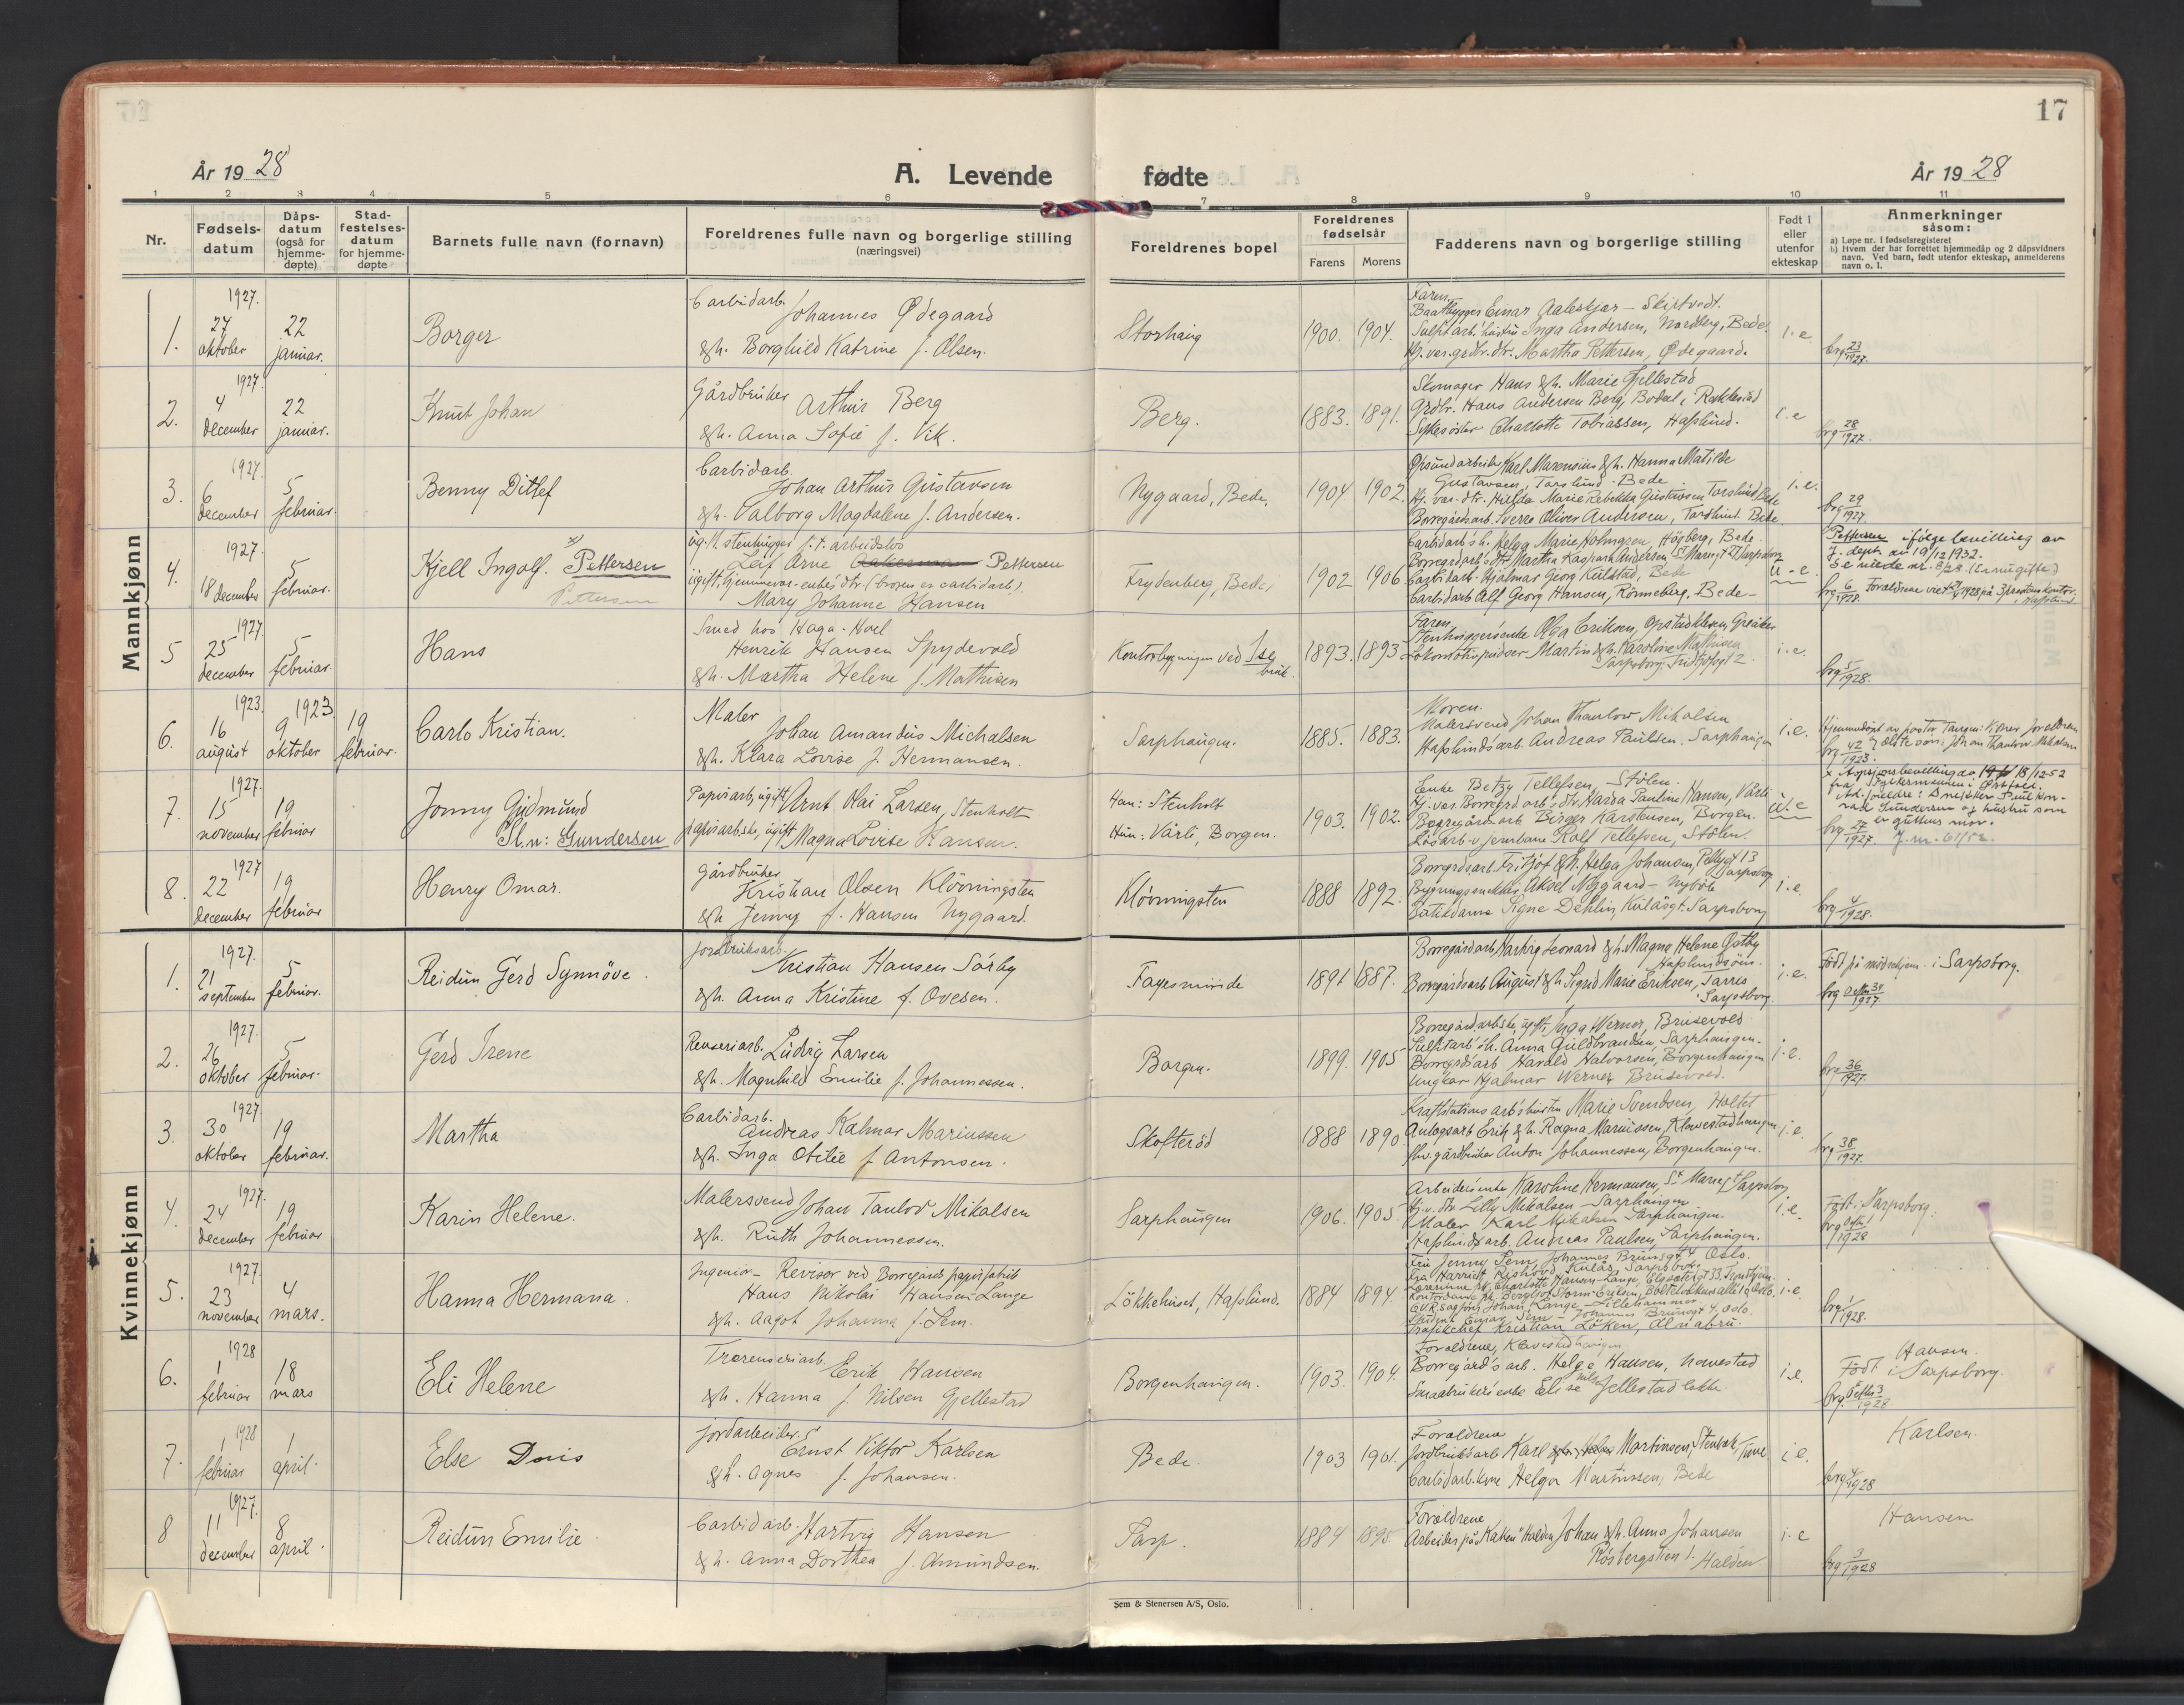 17
År 1928
A. Levende
fødte
År 1928
1 2 3 4 5 6 7 8 9 10 11
Nr.
Fødsels-datum
Dåps-datum (også for hjemme-døpte)
Stad-festelses-datum for hjemme-døpte
Barnets fulle navn (fornavn)
Foreldrenes fulle navn og borgerlige stilling
(næringsvei)
Foreldrenes bopel
Foreldrenes fødselsår
Farens
Morens
Fadderens navn og borgerlige stilling
Født i eller utenfor ekteskap
Anmerkninger
såsom:
a) Løpe nr. i fødselsregisteret
b) Hvem der har forrettet hjemmedåp og 2 dåpsvidners
navn. Ved barn, født utenfor ekteskap, anmelderens
navn o. l.
Mannkjønn
1. 1927. 27 oktober 22 januar. Borger
Carbidarb. Johannes Ødegaard
&h. Borghild Katrine f. Olsen.
Storhaug 1900. 1904.
Faren,
Baatbygger Einar Aaleskjær - Skiptvedt.
Sulfitarb. hustru Inga Andersen, Nordberg, Bede.
Hj.vær.grdbr.dtr. Martha Pettersen, Ødegaard.
i.e. brg 23/1927.
2. 1927. 4 december 22 januar. Knut Johan
Gårdbruker Arthur Berg
&h. Anna Sofie f. Vik.
Berg. 1883. 1891.
Skomager Hans &h. Marie Gjellestad
Grdbr. Hans Andersen Berg, Bodal i Rakkestad
Sykesöster Charlotte Tobiassen, Hafslund.
i.e brg 28/1927.
3. 1927. 6 december 5 februar. Benny Ditlef
Carbidarb.
Johan Arthur Gustavsen
&h. Valborg Magdalene f. Andersen.
Nygaard, Bede. 1904 1902.
Karl Marensius &h. Hanna Matilde
Gustavsen, Torslund. Bede
Hj.vær.dtr. Hilda Marie Rebekka Gustavsen Torslund Bede
Borregårdsarb. Sverre Oliver Andersen, Torslund. Bede.
i.e. brg 29/1927.
4. 1927. 18 december 5 februar. Kjell Ingolf. x) Pettersen
Pettersen
ug. f. stenhugger f.t. arbeidslös
Leif Arne Pettersen
ugift hjemmevær. enke's dtr. (broren er carbidarb.)
Mary Johanne Hansen
Frydenberg, Bede, 1902 1906
Carbidarb's h. Helga Marie Holmgren, Högberg, Bede.
Carbidarb. Hjalmar Georg Kulstad, Bede
Carbidarb Alf Georg Hansen, Könneberg. Bede-
u-e
x) Pettersen ifølge bevilling av
J. dept. av 19/12 1932.
brg 6/1928.
5 1927. 25 december 5 februar. Hans
Smed hos Haga - Hoel
Henrik Hansen Spydevold
&h. Martha Helene f. Mathisen
Kontorbygningen ved Ise bruk. 1893. 1893
Faren,
Stenhuggersenke Olga Eriksen, Opstadklevn, Greåker
Lokomotivpudser Martin &h. Karoline Mathisen
Sarpsborg. Fridtjofsgt 2.
i.e. brg 5/1928.
6. 1923. 16 august 1923 9 oktober 19 februar. Carlo Kristian.
Maler
Johan Amandus Michalsen
&h. Klara Lovise f. Hermansen.
Sarphaugen. 1885. 1883.
Moren.
Malersvend Johan Thaulow Mikalsen
Hafslundsarb. Andreas Paulsen. Sarphaugen
i.e. brg 42/1923.
7. 1927. 15 november 19 februar Jonny Gudmund
Sl.n: Gundersen
Papirarb, ugift Arnt Olai Larsen, Stenholt
papirarbske, ugift Magna Lovise Hansen.
Han: Stenholt
Hun: Vårli, Borgen.
1903. 1902.
Enke Betzy Tellefsen, Stölen.
Hj.vær.Borregrd.arb's dtr. Harda Pauline Hansen, Vårli
Borregårdsarb Birger Karstensen, Borgen.
Lösarb. v jernbane Rolf Tellefsen, Stölen.
u.e
x Adopsjonsbevilling av 18/12-52
fra Fylkesmannen i Østfold.
Ad. foreldre: Snekker Paul Kon-
rad Gundersen og hustru som
er guttens mor.
brg 27/1927. J.nr. 61/52.
8. 1927 22 december 19 februar Henry Omar.
Gårdbruker
Kristian Olsen Klövningsten
&h Jenny f. Hansen Nygaard.
Klövningsten 1888 1892.
Borregrdsarb. Fritjof &h. Helga Johansen, Pellygt 13
Sarpsborg
Bygningssnekker Aksel Nygaard - Nybøle
Butikdame Signe Dehlin, Kulåsgt. Sarpsborg
i.e. brg 4/1928.
Kvinnekjønn
1. 1927. 21 september 5 februar. Reidun Gerd Synnöve.
Jordbruksarb.
Kristian Hansen Sörby
&h. Anna Kristine f. Ovesen.
Fagesminde 1891 1887.
Borregårdarb. Hartvig Leonard &h. Magna Helene Østby
Hafslundsöen.
Borregårdsarb August &h Sigrid Marie Eriksen, Tarris
Sarpsborg
i.e. Født på mödrehjem. i Sarpsborg.
2. 1927. 26 oktober 5 februar. Gerd Irene
Renseriarb. Ludvig Larsen
&h. Magnhild Emilie f. Johannessen.
Borgen. 1899. 1905
Borregård.arbske, ugift, Inga Werner, Brusevold
Sulfitarb's h. Anna Guldbrandsen, Sarphaugen.
Borregrdsarb Harald Halvorsen, Borgenhaugen
Ungkar Hjalmar Werner Brusevold.
i.e. brg 36/1927.
3. 1927 30 oktober 19 februar. Martha
Carbidarb.
Andreas Kalmar Mariussen
&h. Inga Otilie f Antonsen.
Skofteröd 1888 1890
Kraftstations arb's hustru Marie Svendsen, Holtet
Anlægsarb Erik &h. Ragna Mariussen, Klavestadhaugen
fhv. gårdbruker Anton Johannessen, Borgenhaugen.
i.e. brg 38/1927.
4. 1927. 24 december 19 februar Karin Helene.
Malersvend Johan Taulov Mikalsen
&h. Ruth Johannessen.
Sarphaugen 1906. 1905.
Arbeidersenke Karoline Hermansen, St Mariegt Sarpsborg
Hj.v. dtr. Lilly Mikalsen - Sarphaugen
Maler Karl Mikalsen Sarphaugen.
Hafslundsarb. Andreas Paulsen, Sarphaugen.
i.e. Født i Sarpsborg.
5. 1927. 23 november 4 mars. Hanna Hermana.
Ingeniør - Revisor ved Borregårds papirfabrik
Hans Nikolai Hansen-Lange
&h. Aagot Johanna f. Sem.
Lökkehuset, Hafslund. 1884 1894.
Fru Jenny Sem, Johannes Brunsgt 4 Oslo.
Student Einar Sem - Johannes Brunsgt 4, Oslo.
Trafikchef Kristian Löken, Alnabru.
i.e. brg 1/1928.
6. 1928 1 februar 18 mars Eli Helene
Trærenseriarb.
Erik Hansen
&h. Hanna f. Nilsen Gjellestad
Borgenhaugen. 1903. 1904.
Foreldrene, Klavestadhaugen
Borregård's arb. Helge Hansen, Navestad
Smaabrukers enke Elise Nilsen Gjellestad løkke
i.e. Hansen.
Født i Sarpsborg.
7. 1928 1 februar 1 april. Else Doris
Jordarbeider
Ernst Viktor Karlsen
&h. Agnes f. Johansen.
Bede. 1903 1901.
Foreldrene
Jordbruksarb Karl Martinsen, Stenbæk, Tune
Carbidarb.kone Helga Martinsen, Bede
i e. Karlsen.
brg 4/1928
8 1927. 11 december 8 april. Reidun Emilie
Carbidarb. Hartvig Hansen
&h. Anna Dorthea f. Amundsen.
Tarp. 1884 1895.
Foreldrene
Arbeider på "Kaken" Halden Johan &h. Anna Johansen
Rösbergstien 1. Halden
i-e Hansen
brg 3/1928
Sem & Stenersen A/S, Oslo.